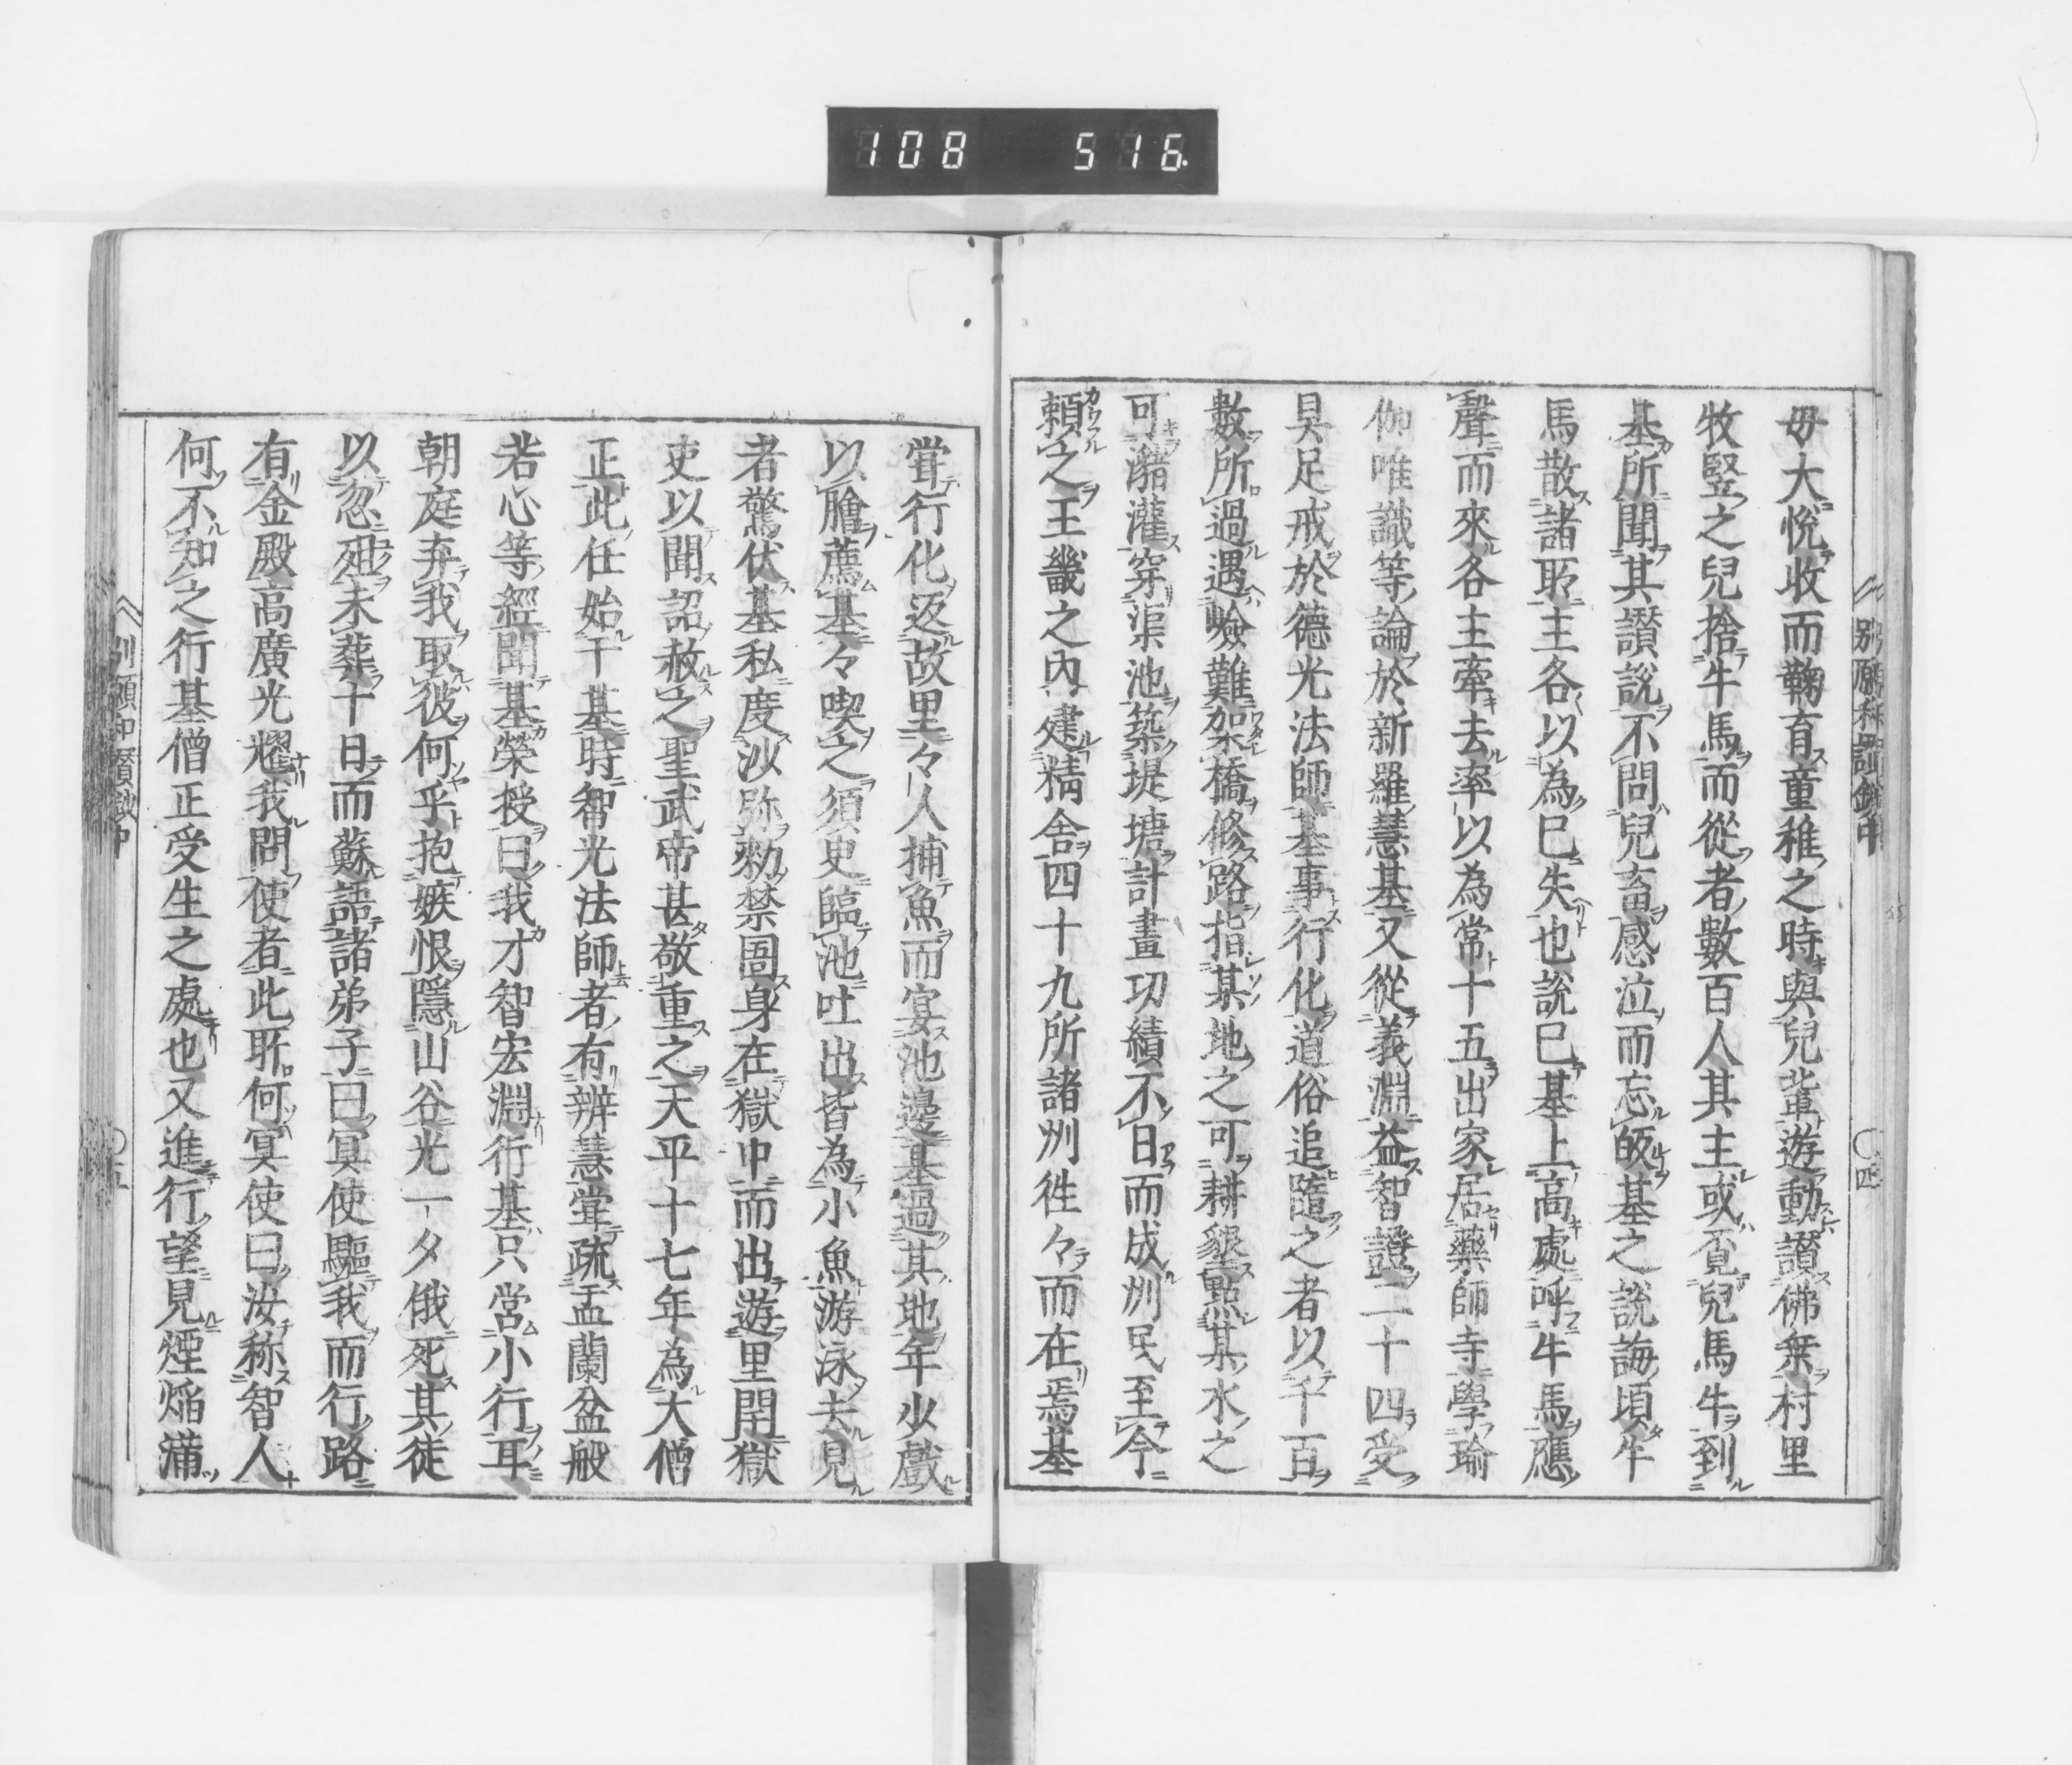 108 516
毋大悅收而鞠育童稚之時與兒輩遊動讃佛乗村里
牧竪之兒捨牛馬而從者數百人其主或覔兒馬牛到
基所聞其讃說不問兒畜感泣而忘皈基之說誨頃牛
馬散諸耴主各以為巳失也說巳基上高處呼牛馬應
聲而來各主牽去率以為常十五出家居藥師寺學瑜
伽唯識等論於新羅慧基又從義淵益智證二十四受
具足戒於德光法師基事行化道俗追隨之者以千百
數所過遇嶮難架橋修路指某地之可耕墾點某水之
可瀦灌穿渠池築堤塘計畫功績不日而成洲民至今
頼之王畿之內建精舍四十九所諸洲徃々而在焉基
甞行化返故里々人捕魚而宴池邊基過其地年少戲
以膾薦基々喫之須史臨池吐出皆為小魚游泳去見
者驚伏基私度沙弥勑禁圄身在獄中而出遊里閈獄
吏以聞詔赦之聖武帝甚敬重之天平十七年為大僧
正此任始干基時智光法師者有辨慧甞疏盂蘭盆般
若心等經聞基榮授曰我才智宏淵行基只営小行耳
朝庭弃我取彼何乎抱嫉恨隱山谷光一夕俄死其徒
以忽殂未葬十日而蘇語諸弟子曰冥使驅我而行路
有金殿高廣光耀我問使者此耴何冥使曰汝称智人
何不知之行基僧正受生之處也又進行望見煙焔滿